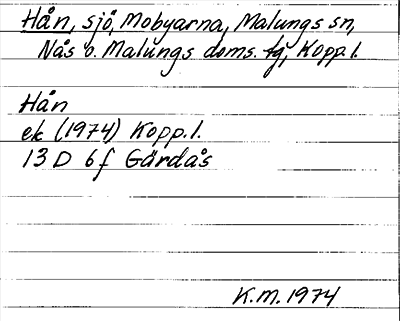 Hån, sjö, Mobyarna, Malungs sn,
Nås o. Malungs doms. fg, Kopp. l.
Hån
ek (1974) Kopp. l.
13 D 6 f Gärdås
K.M. 1974